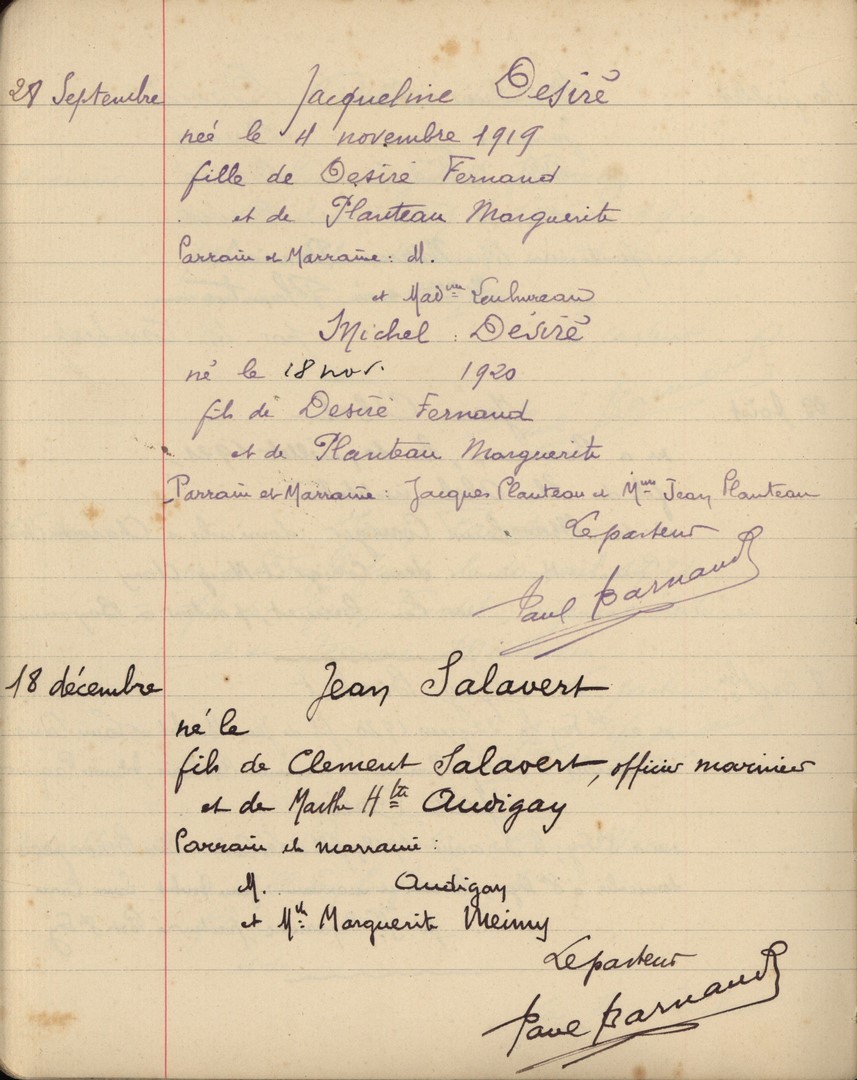 28 Septembre Jacqueline Desiré
neé le 4 novembre 1919
fille de Desiré Fernand
et de Planteau Marguerite
Parrain et Marraine : M.
et Mad^me
Michel Désiré
né le 18 nov. 1920
fils de Desiré Fernand
et de Planteau Marguerite
Parrain et Marraine : Jacques Planteau et M^me Jean Planteau
Le pasteur
Paul Barnaud
18 décembre Jean Salavert
né le
fils de Clement Salavert, officier marinier
et de Marthe H^tte Audigay
Parrain et marraine :
M. Audigay
et M^lle Marguerite Meimy
Le pasteur
Paul Barnaud